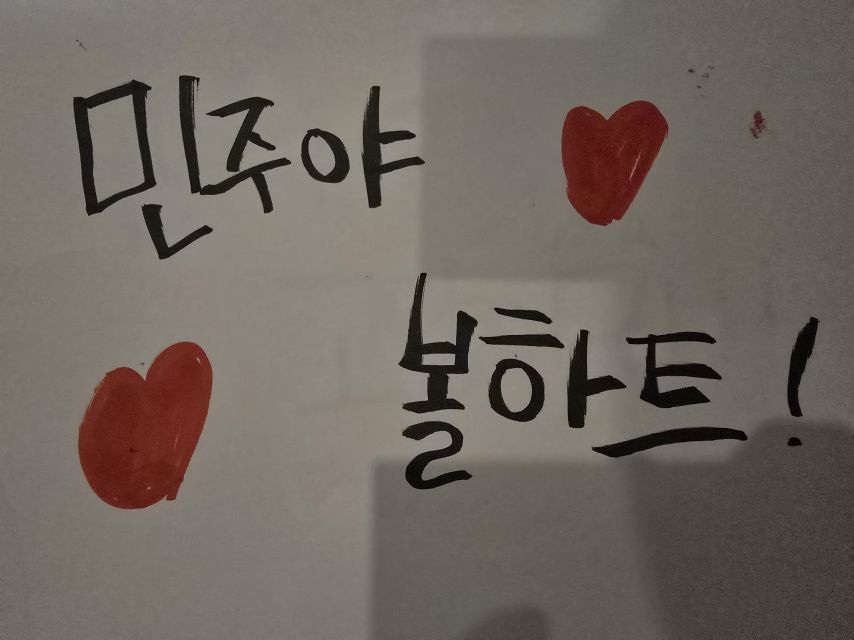 민주야
볼하트!